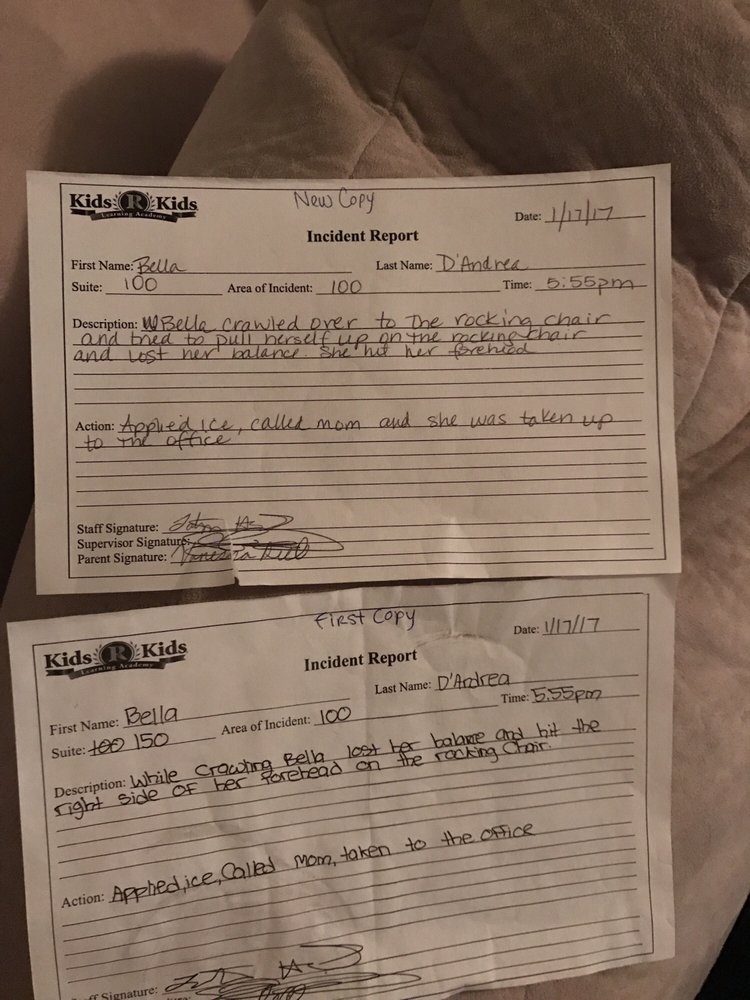 Kids R Kids
Learning Academy
New Copy
Date: 1/17/17
Incident Report
First Name: Bella Last Name: D'Andrea
Suite: 100 Area of Incident: 100 Time: 5:55pm
Description: Bella crawled over to the rocking chair
and tried to pull herself up on the rocking chair
and lost her balance. She hit her forehead
Action: Applied ice, called mom and she was taken up
to the office
Staff Signature:
Supervisor Signature:
Parent Signature: Vanessa
Kids R Kids
Learning Academy
First Copy
Date: 1/17/17
Incident Report
First Name: Bella Last Name: D'Andrea
Suite: 100 150 Area of Incident: 100 Time: 5:55pm
Description: While crawling Bella lost her balance and hit the
right side of her forehead on the rocking chair.
Action: Applied, ice, Called mom, taken to the office
Signature: